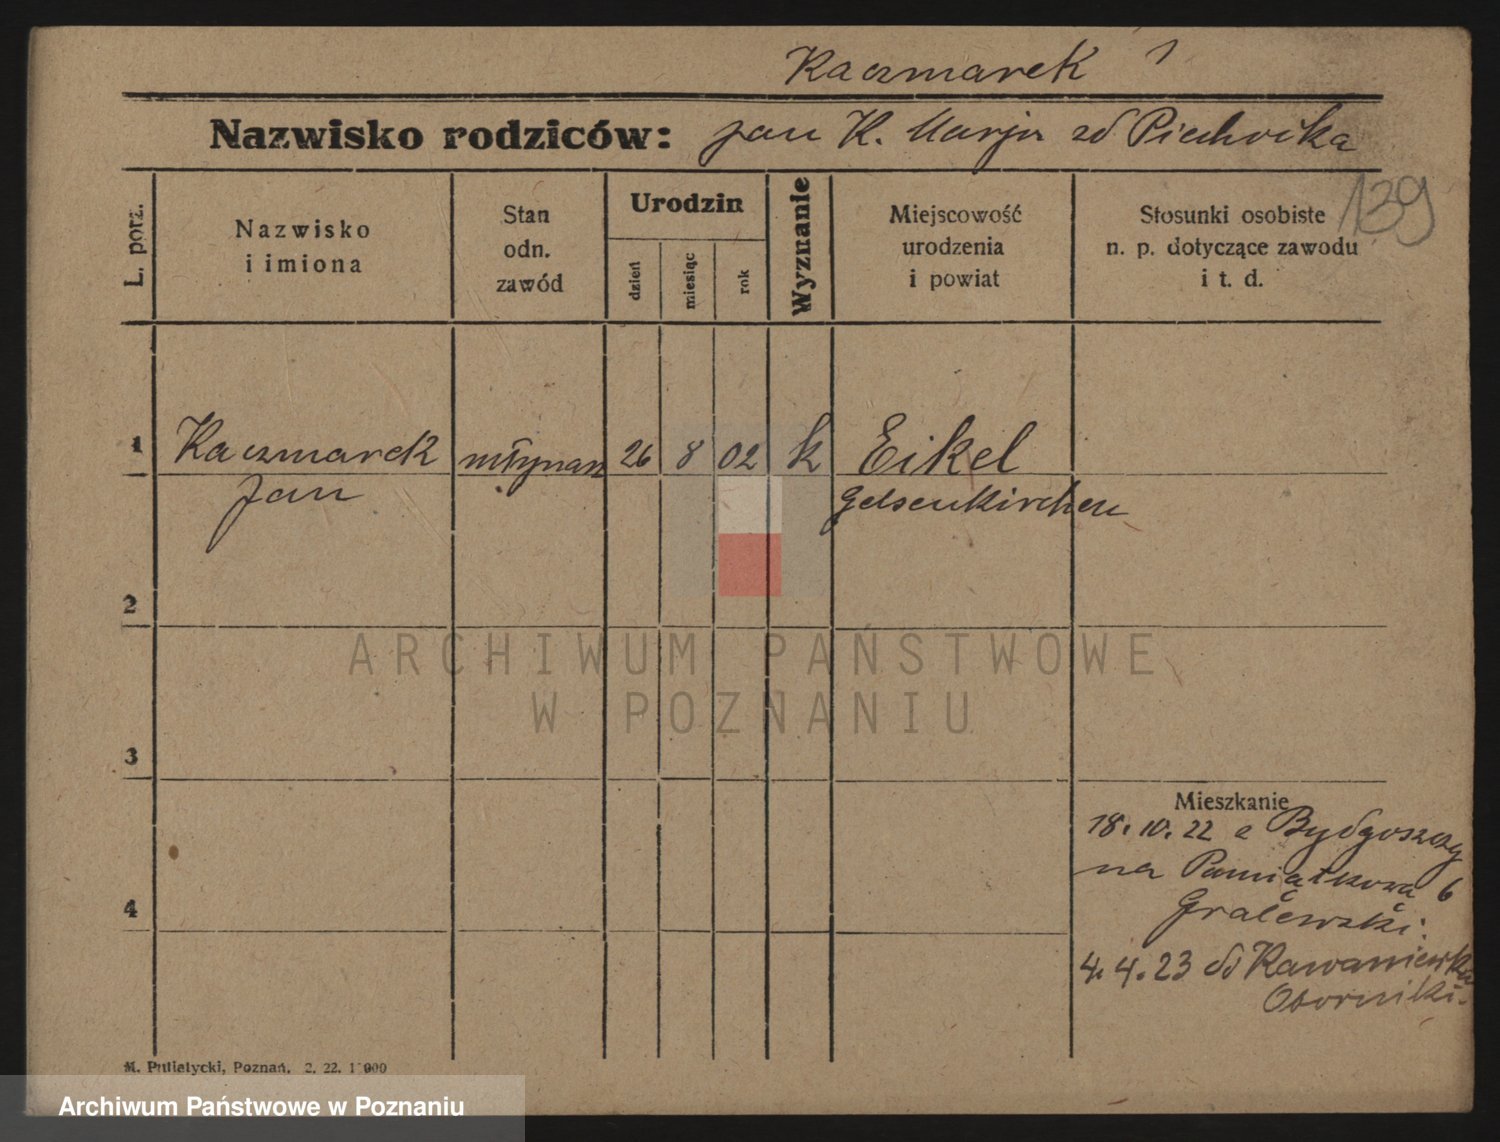 Kaczmarek
Nazwisko rodziców: Jan K. Marja zd Piechocka
139
L. porz.
Nazwisko
i imiona
Stan
odn.
zawód
Urodzin
dzień
miesiąc
rok
Wyznanie
Miejscowość
urodzenia
i powiat
Stosunki osobiste
n. p. dotyczące zawodu
i t. d.
1 Kaczmarek młynarz 26 8 02 k Eikel
Jan Gelsenkirchen
2
ARCHIWUM PAŃSTWOWE
W POZNANIU
3
Mieszkanie
18. 10. 22 z Bydgoszczy
na Pamiątkowa 6
Gralewski.
4
4. 4. 23 do
Oborniki.
M. Putiatycki, Poznań. 2. 22. 1000
Archiwum Państwowe w Poznaniu